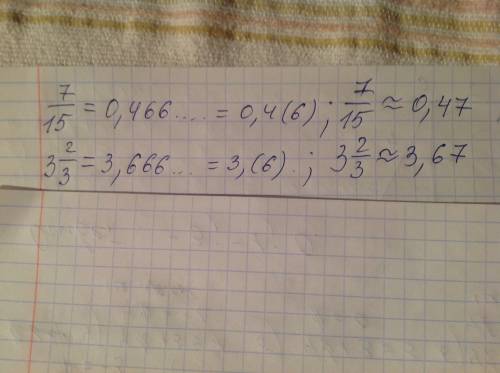 7/15 = 0,466.... = 0,4(6); 7/15 ≈ 0,47
3 2/3 = 3,666... = 3,(6).; 3 2/3 ≈ 3,67